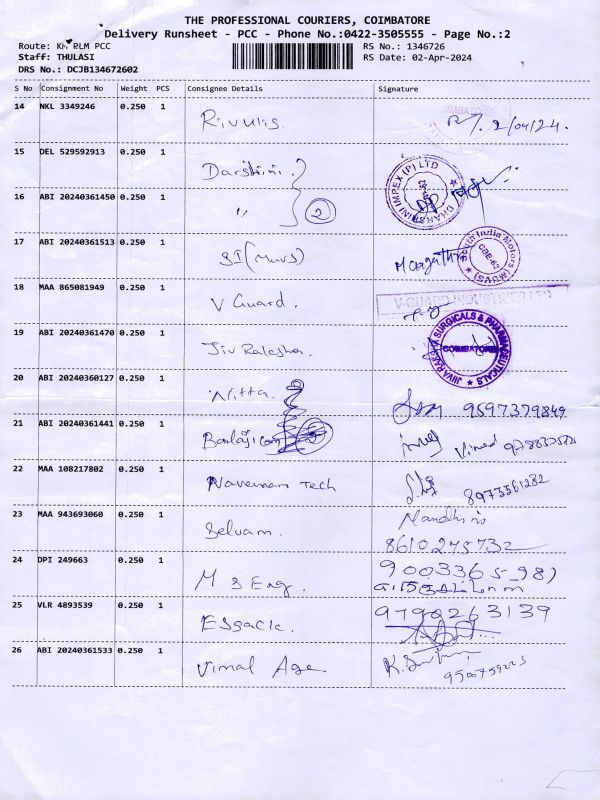 THE PROFESSIONAL COURIERS, COIMBATORE
Delivery Runsheet - PCC - Phone No.:0422-3505555 - Page No.:2
Route: KM RLM PCC
RS No.: 1346726
Staff: THULASI
RS Date: 02-Apr-2024
DRS No.: DCJB134672602
S No Consignment No Weight PCS Consignee Details Signature
14 NKL 3349246 0.250 1 Rivulis. 2/04/24.
15 DEL 529592913 0.250 1 Darshini.
DHARSHINI IMPEX (P) LTD
16 ABI 20240361450 0.250 1 〃 2
17 ABI 20240361513 0.250 1 SI (MUVS)
South India Motors (MUVS)
CBE-62
18 MAA 865081949 0.250 1 V Guard.
V-GUARD INDUSTRIES LTD
19 ABI 20240361470 0.250 1 Jiv Raksha.
JIIVA RAKSHA SURGICALS & PHARMACEUTICALS
COIMBATORE
20 ABI 20240360127 0.250 1 Nitta. 9597379849
21 ABI 20240361441 0.250 1 Balaji Vimal
22 MAA 108217802 0.250 1 Naveenam Tech 8973561282
23 MAA 943693060 0.250 1 Selvam. Nandhini
8610275732
24 DPI 249663 0.250 1 M S Eng. 9003365981
25 VLR 4893539 0.250 1 9790263139
26 ABI 20240361533 0.250 1 Vimal Age.